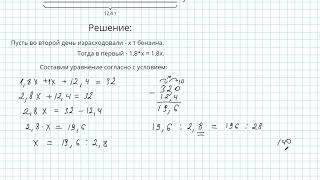 12,4 т
Решение:
Пусть во второй день израсходовали - x т бензина.
Тогда в первый - 1,8*x = 1,8x.
Составим уравнение согласно с условием:
1,8x + 1x + 12,4 = 32
2,8x + 12,4 = 32
2,8x = 32 - 12,4
2,8 · x = 19,6
x = 19,6 : 2,8
- 32,0
12,4
19,6
19,6 : 2,8 = 196 : 28
140